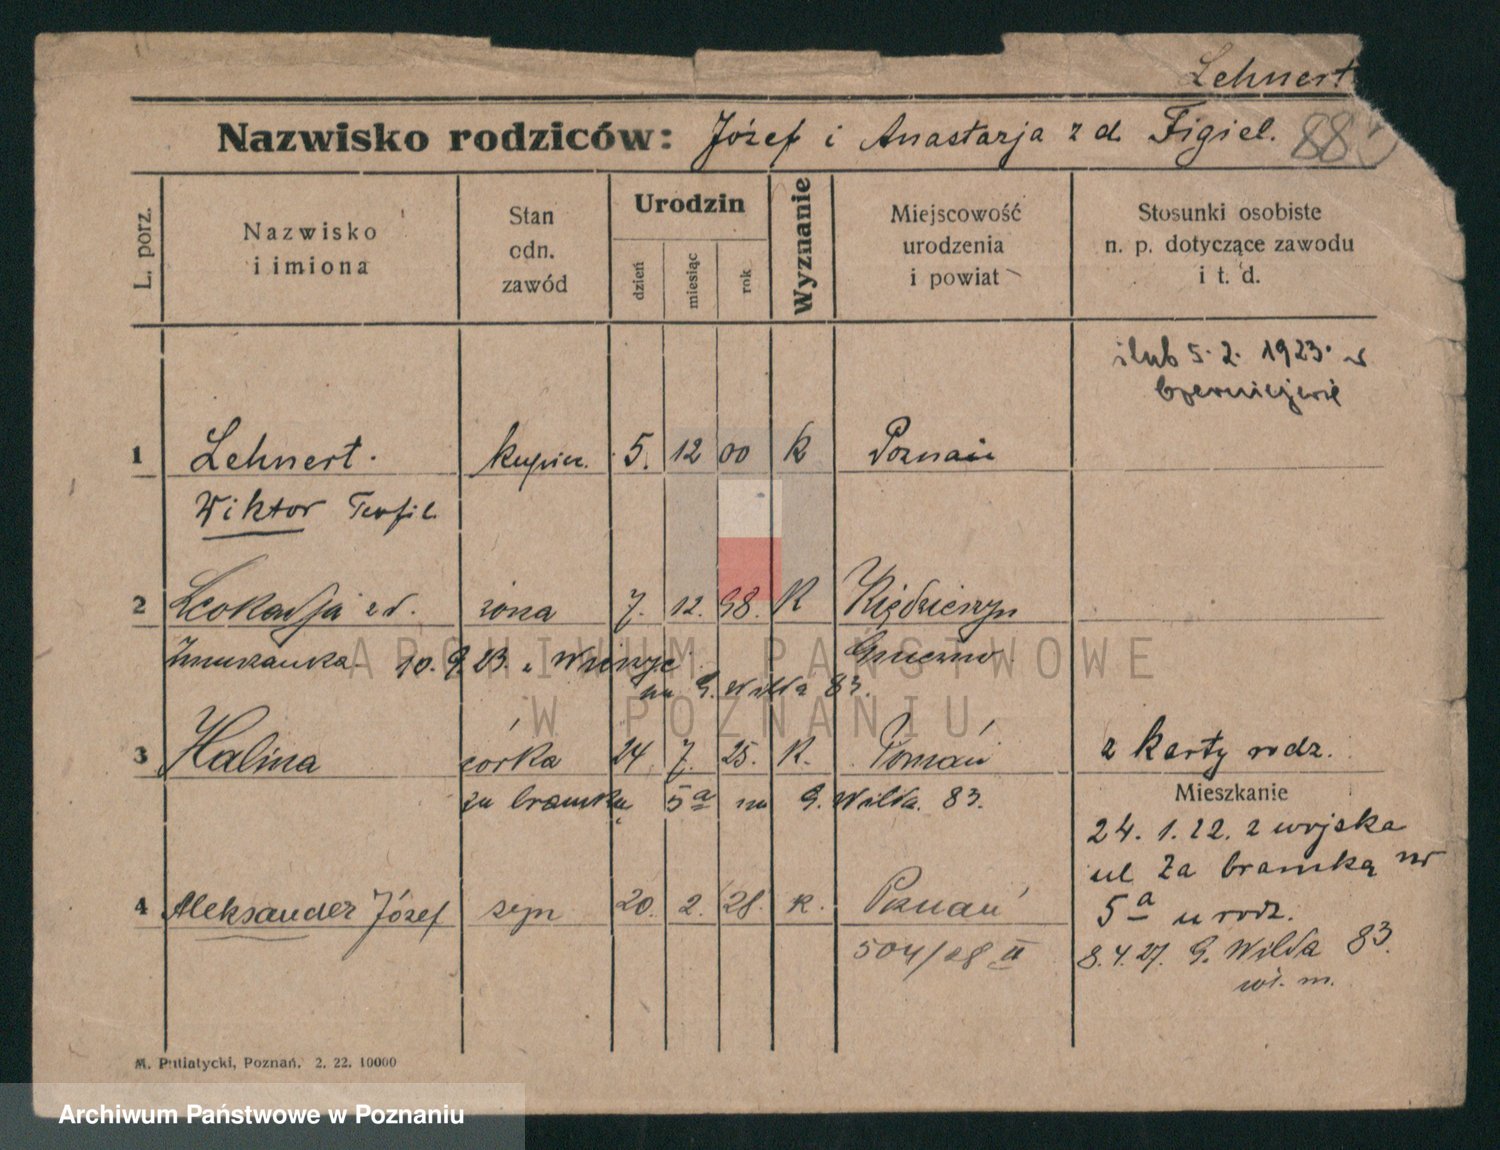 Lehnert
Nazwisko rodziców: Józef i Anastazja z d. Figiel. 88
L. porz.
Nazwisko i imiona
Stan odn. zawód
Urodzin
dzień
miesiąc
rok
Wyznanie
Miejscowość urodzenia i powiat
Stosunki osobiste n. p. dotyczące zawodu i t. d.
ślub 5. 2. 1923. w
Czerniejewie
1 Lehnert. kupiec. 5. 12 00 k Poznań
Wiktor Teofil
2 Leokadja z d. żona 7. 12. 98. K Kiędzierzyn
10. 9. 23. z Gniezno
na G. Wilda 83.
3 Halina córka 24 7. 25. K. Poznań z karty rodz.
za bramką 5a na G. Wilda. 83.
Mieszkanie
24. 1. 22. z wojska
ul Za bramką nr
5a u rodz.
4 Aleksander Józef syn 20. 2. 28. k. Poznań
504/28 II
8. 4. 27. G. Wilda 83.
wł. m.
M. Putiatycki, Poznań. 2. 22. 10000
ARCHIWUM PAŃSTWOWE
W POZNANIU
Archiwum Państwowe w Poznaniu